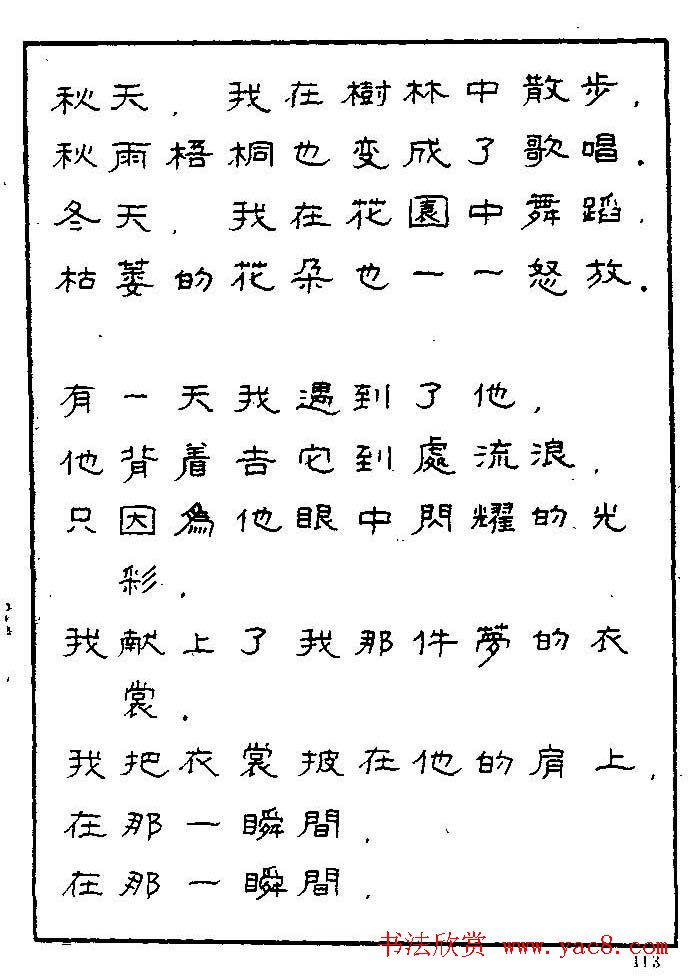 秋天，我在樹林中散步，
秋雨梧桐也变成了歌唱.
冬天，我在花園中舞蹈，
枯萎的花朵也一一怒放.
有一天我遇到了他，
他背着吉它到處流浪，
只因為他眼中閃耀的光
彩.
我献上了我那件夢的衣
裳.
我把衣裳披在他的肩上，
在那一瞬間，
在那一瞬間，
书法欣赏 www.yac8.com
113